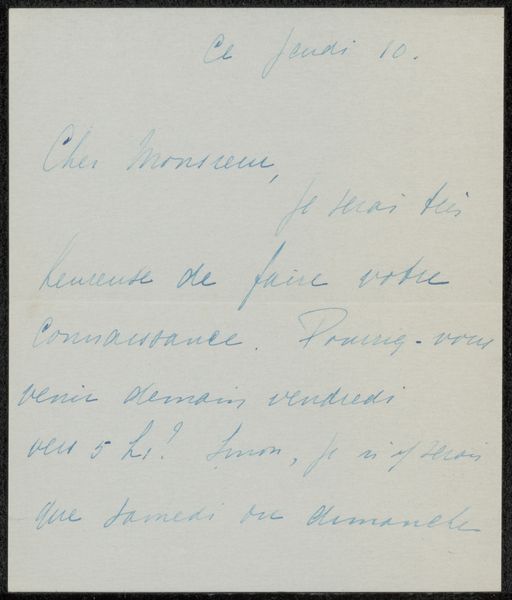 Ce Jeudi 10.
Cher Monsieur,
Je serai très
heureuse de faire votre
connaissance. Pourriez-vous
venir demain vendredi
vers 5 hs? Sinon, je n'y serai
que samedi ou dimanche